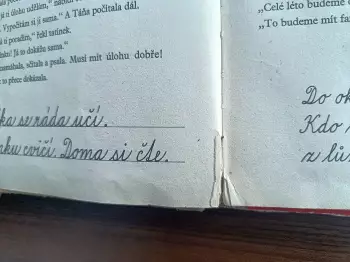 já ti úlohu udělám,"
Vypočítám si ji sama." A Táňa počítala dál.
ti poradím," řekl tatínek.
Já to dokážu sama."
sčítala a psala. Musí mít úlohu dobře!
to přece dokázala.
ka se ráda učí.
nku cvičí. Doma si čte.
„Celé léto budeme
„To budeme mít
Do
Kdo
z